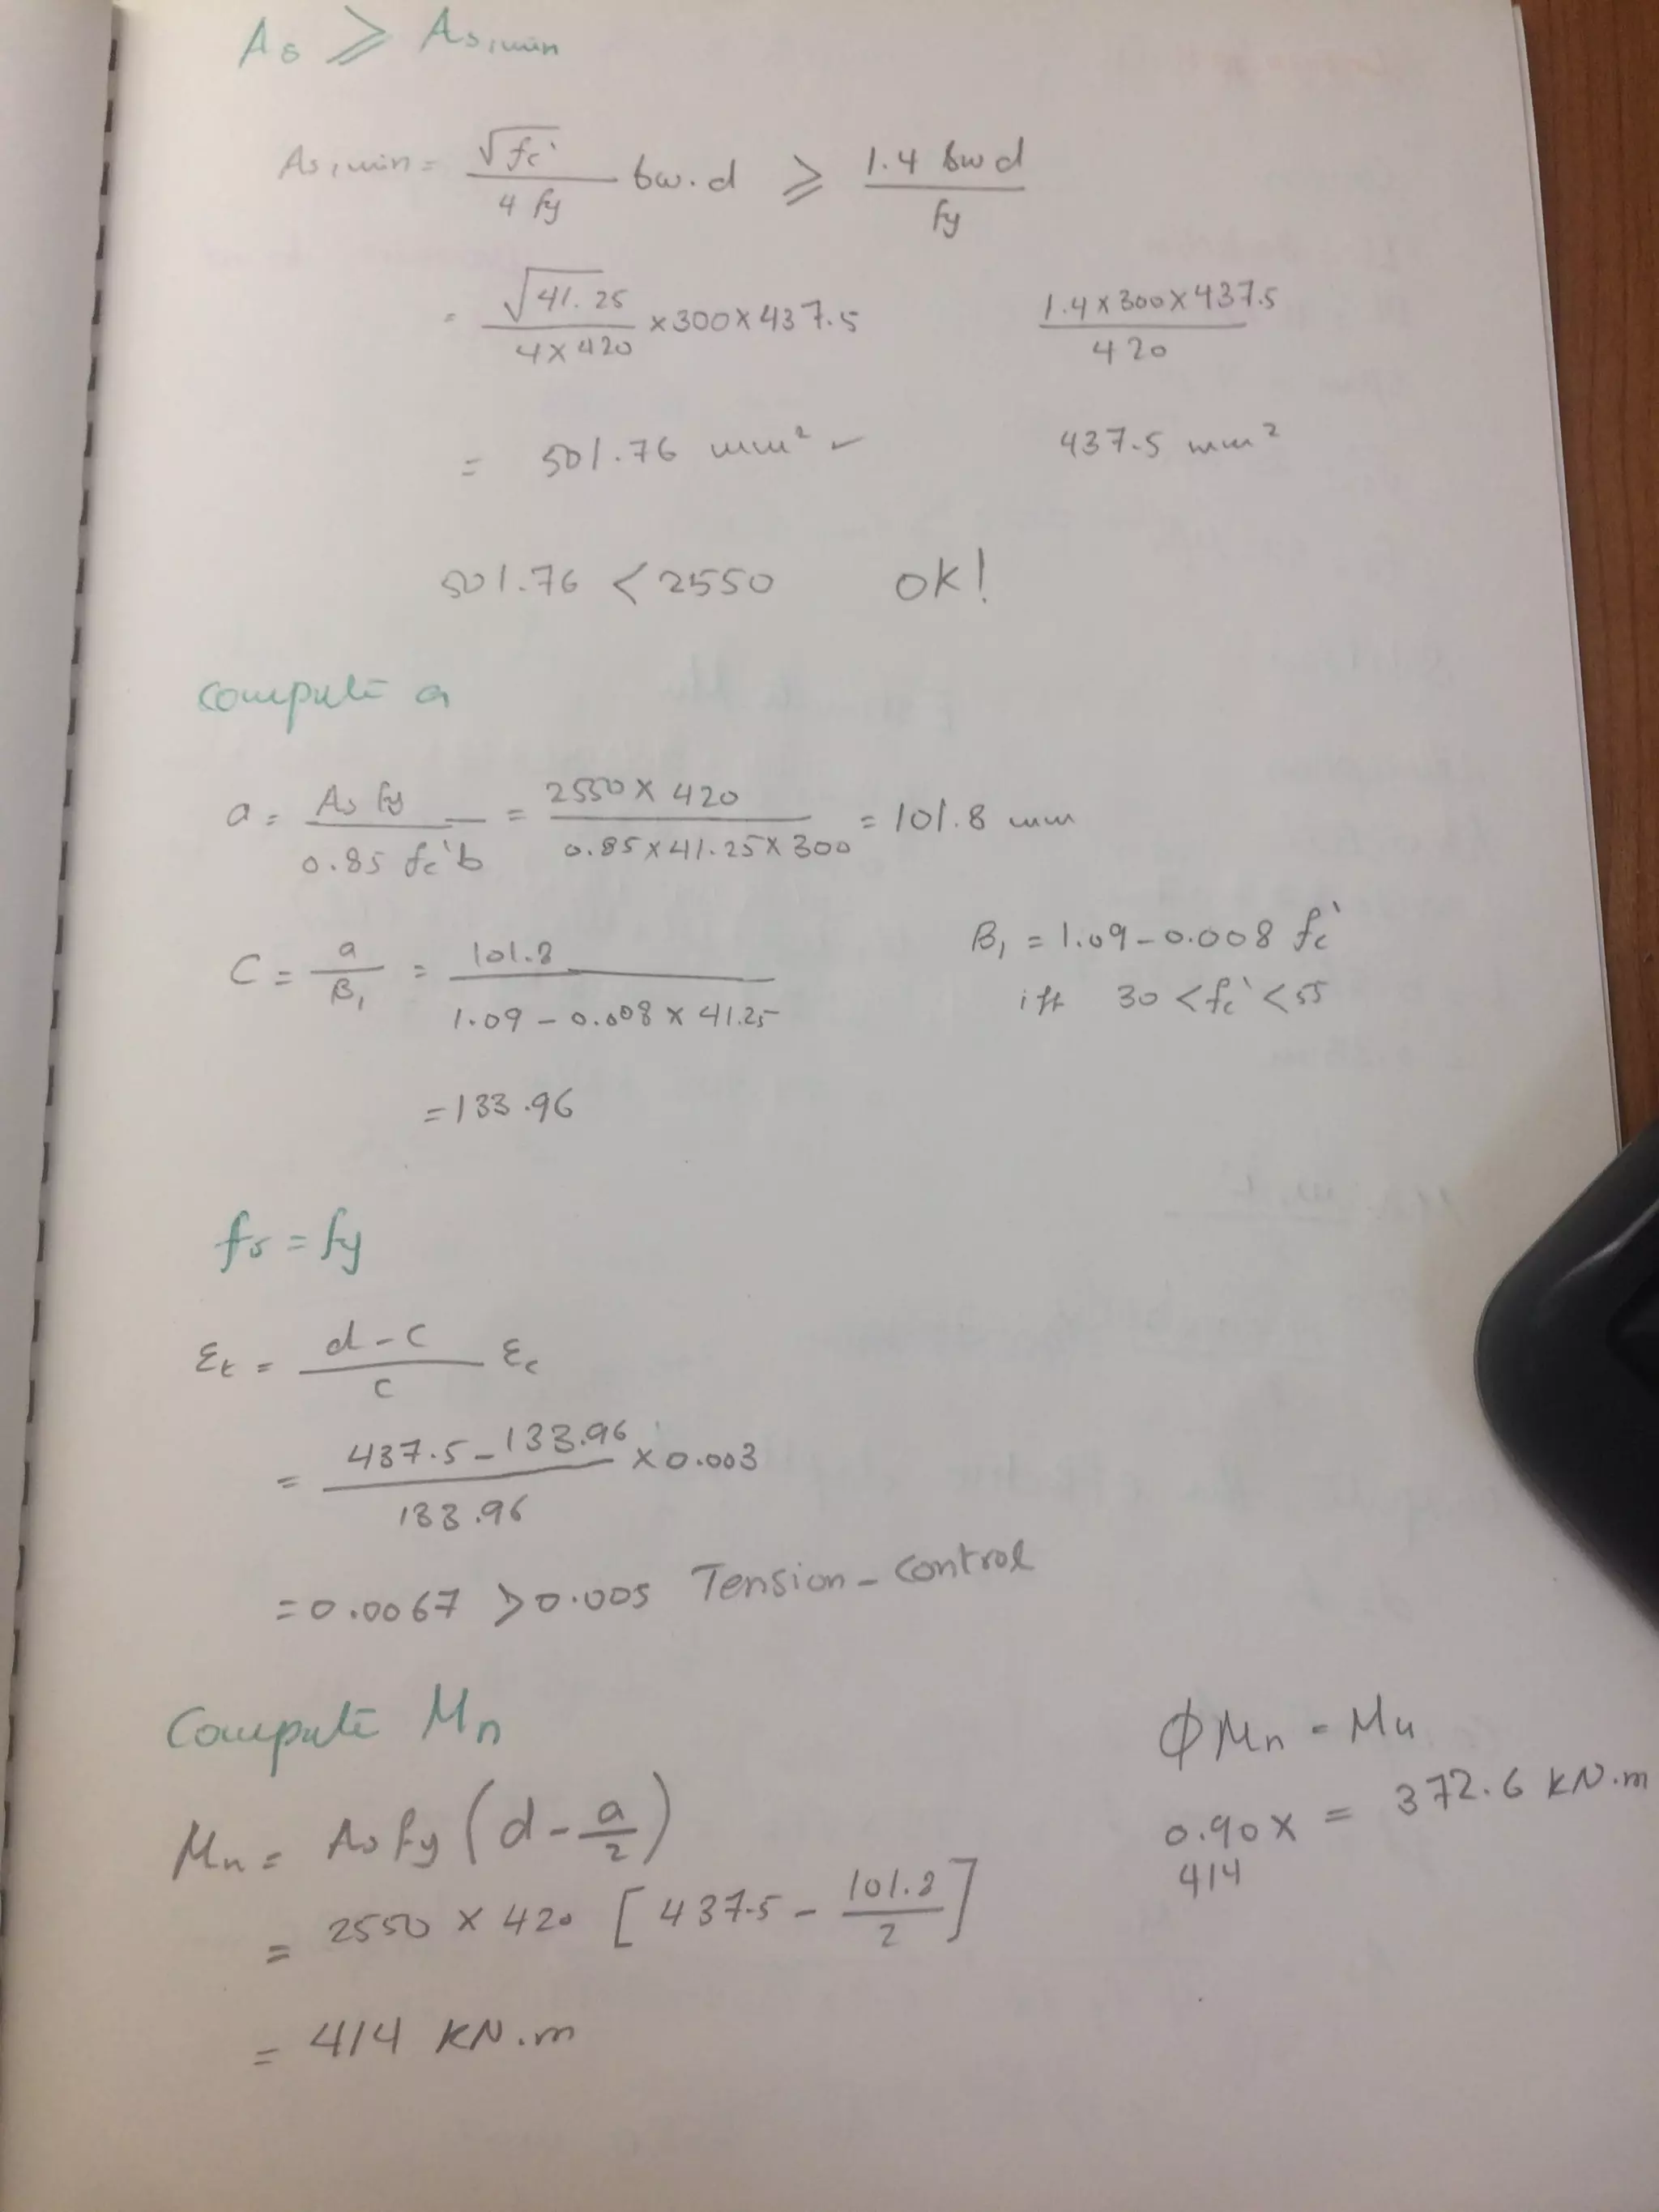 As ⩾ As,min
As,min = √fc' / 4 fy bw.d ⩾ 1.4 bw d / fy
= √41.25 / 4×420 ×300×437.5 1.4×300×437.5 / 420
= 501.76 mm² ✓ 437.5 mm²
501.76 < 2550 OK!
Compute a
a = As fy / 0.85 fc'b = 2550 × 420 / 0.85×41.25×300 = 101.8 mm
C = a / β₁ = 101.8 / 1.09 – 0.008 × 41.25 β₁ = 1.09 – 0.008 fc'
iff 30 < fc' < 55
= 133.96
fs = fy
εt = d – c / c εc
= 437.5 – 133.96 / 133.96 × 0.003
= 0.0067 > 0.005 Tension – control
Compute Mn
ΦMn = Mu
Mn = As fy (d – a/2) 0.90 × 414 = 372.6 KN.m
= 2550 × 420 [437.5 – 101.8 / 2]
= 414 KN.m